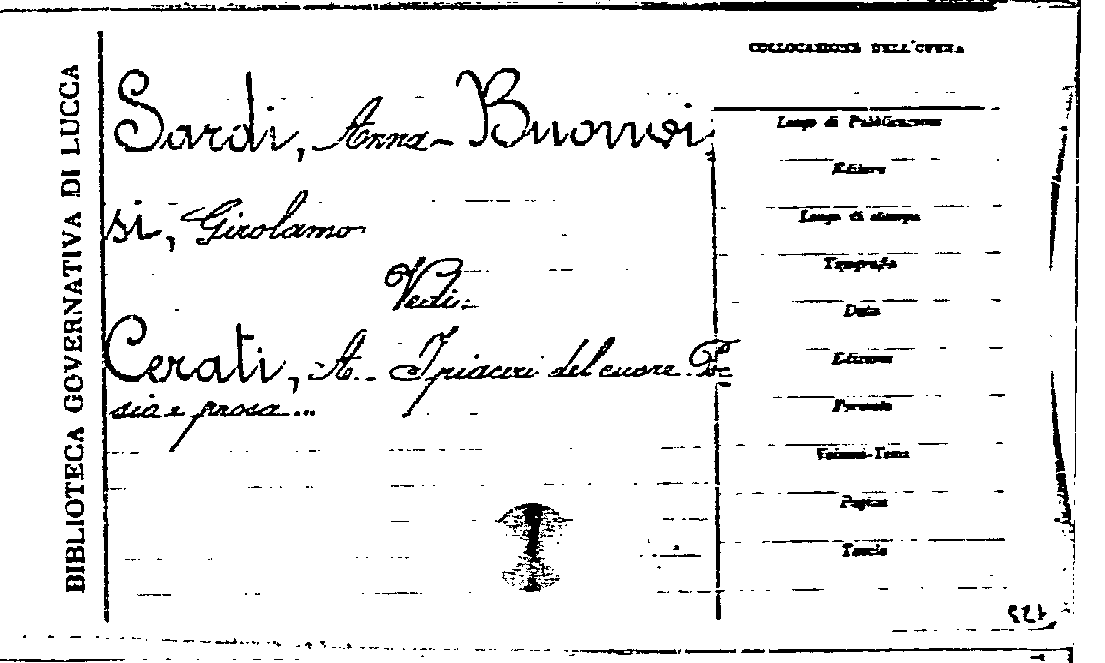 BIBLIOTECA GOVERNATIVA DI LUCCA
Sardi, Anna - Buonvi=
si, Girolamo
Vedi:
Cerati, A. - I piaceri del cuore. Po=
sia e prosa...
COLLOCAZIONE DELL'OPERA
Luogo di Pubblicazione
Editore
Luogo di stampa
Tipografia
Data
Edizione
Formato
Volumi-Tomi
Pagine
Tavole